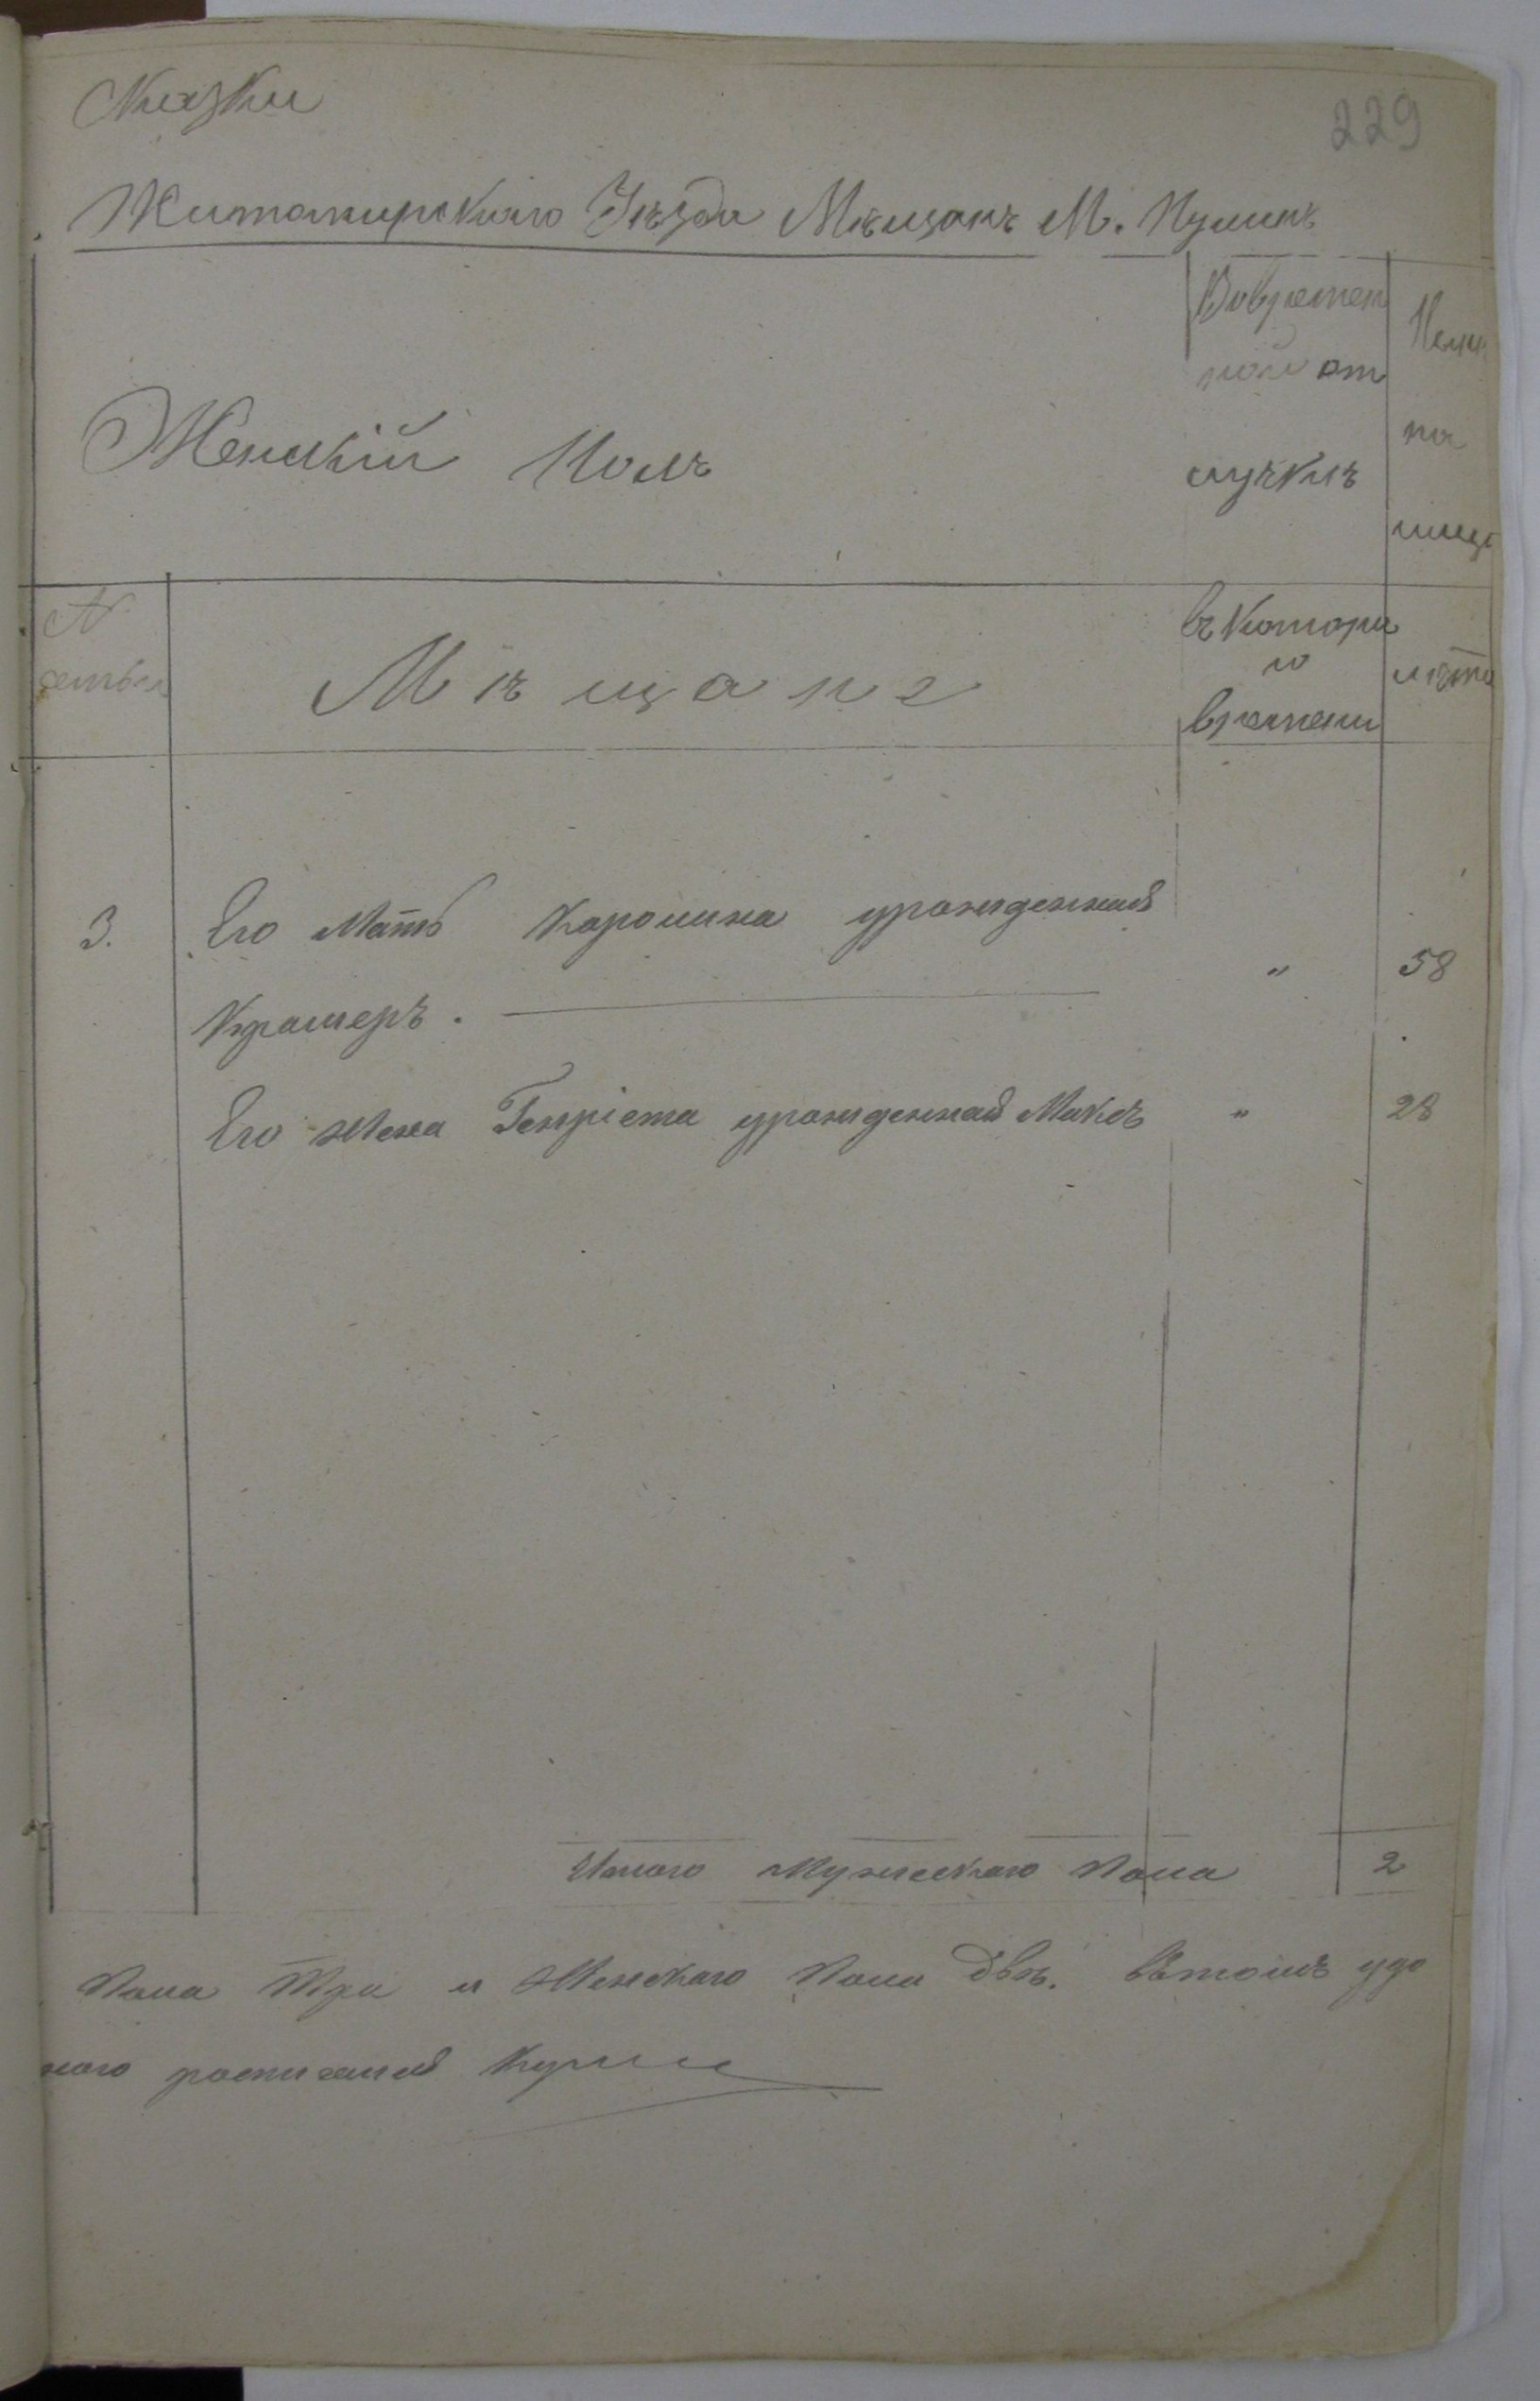 Сказки
229
Житомирскаго Уѣзда Мѣщанъ М. Пулинъ
Женскій Полъ
Вовремен
ной от
лучкѣ
Ныне
на
лице
№
семьи
Мѣщане
въ котора
го
времени
лѣта
3. Его Мать Каролина урожденная
Крамеръ. " 58
Его жена Генріета урожденная Макъ " 28
Итого Мужескаго Пола 2
Пола Три и Женскаго Пола двѣ. Вътомъ удо
ного росписался